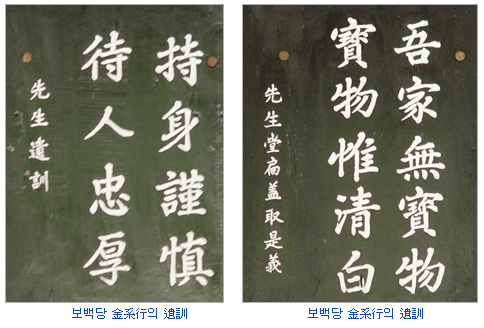 持身謹慎
待人忠厚
先生遺訓
보백당 金系行의 遺訓
吾家無寶物
寶物惟清白
先生堂扁蓋取是義
보백당 金系行의 遺訓